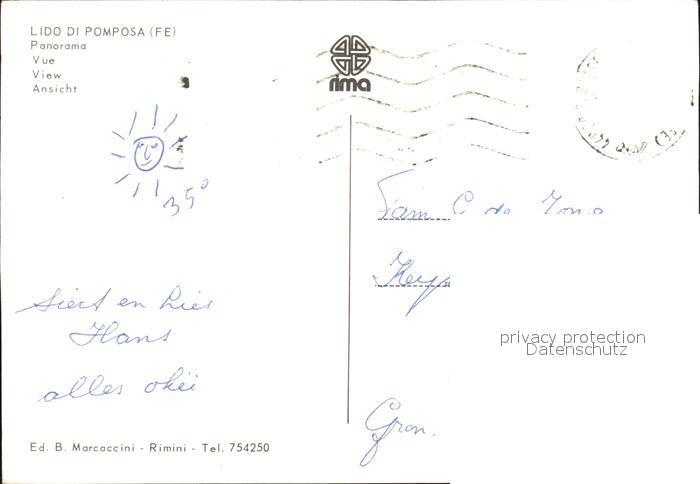 LIDO DI POMPOSA (FE)
Panorama
Vue
View
Ansicht
rima
35°
Siert en Lies
Hans
alles okéi
Fam C de
Gron.
privacy protection
Datenschutz
Ed. B. Marcaccini - Rimini - Tel. 754250